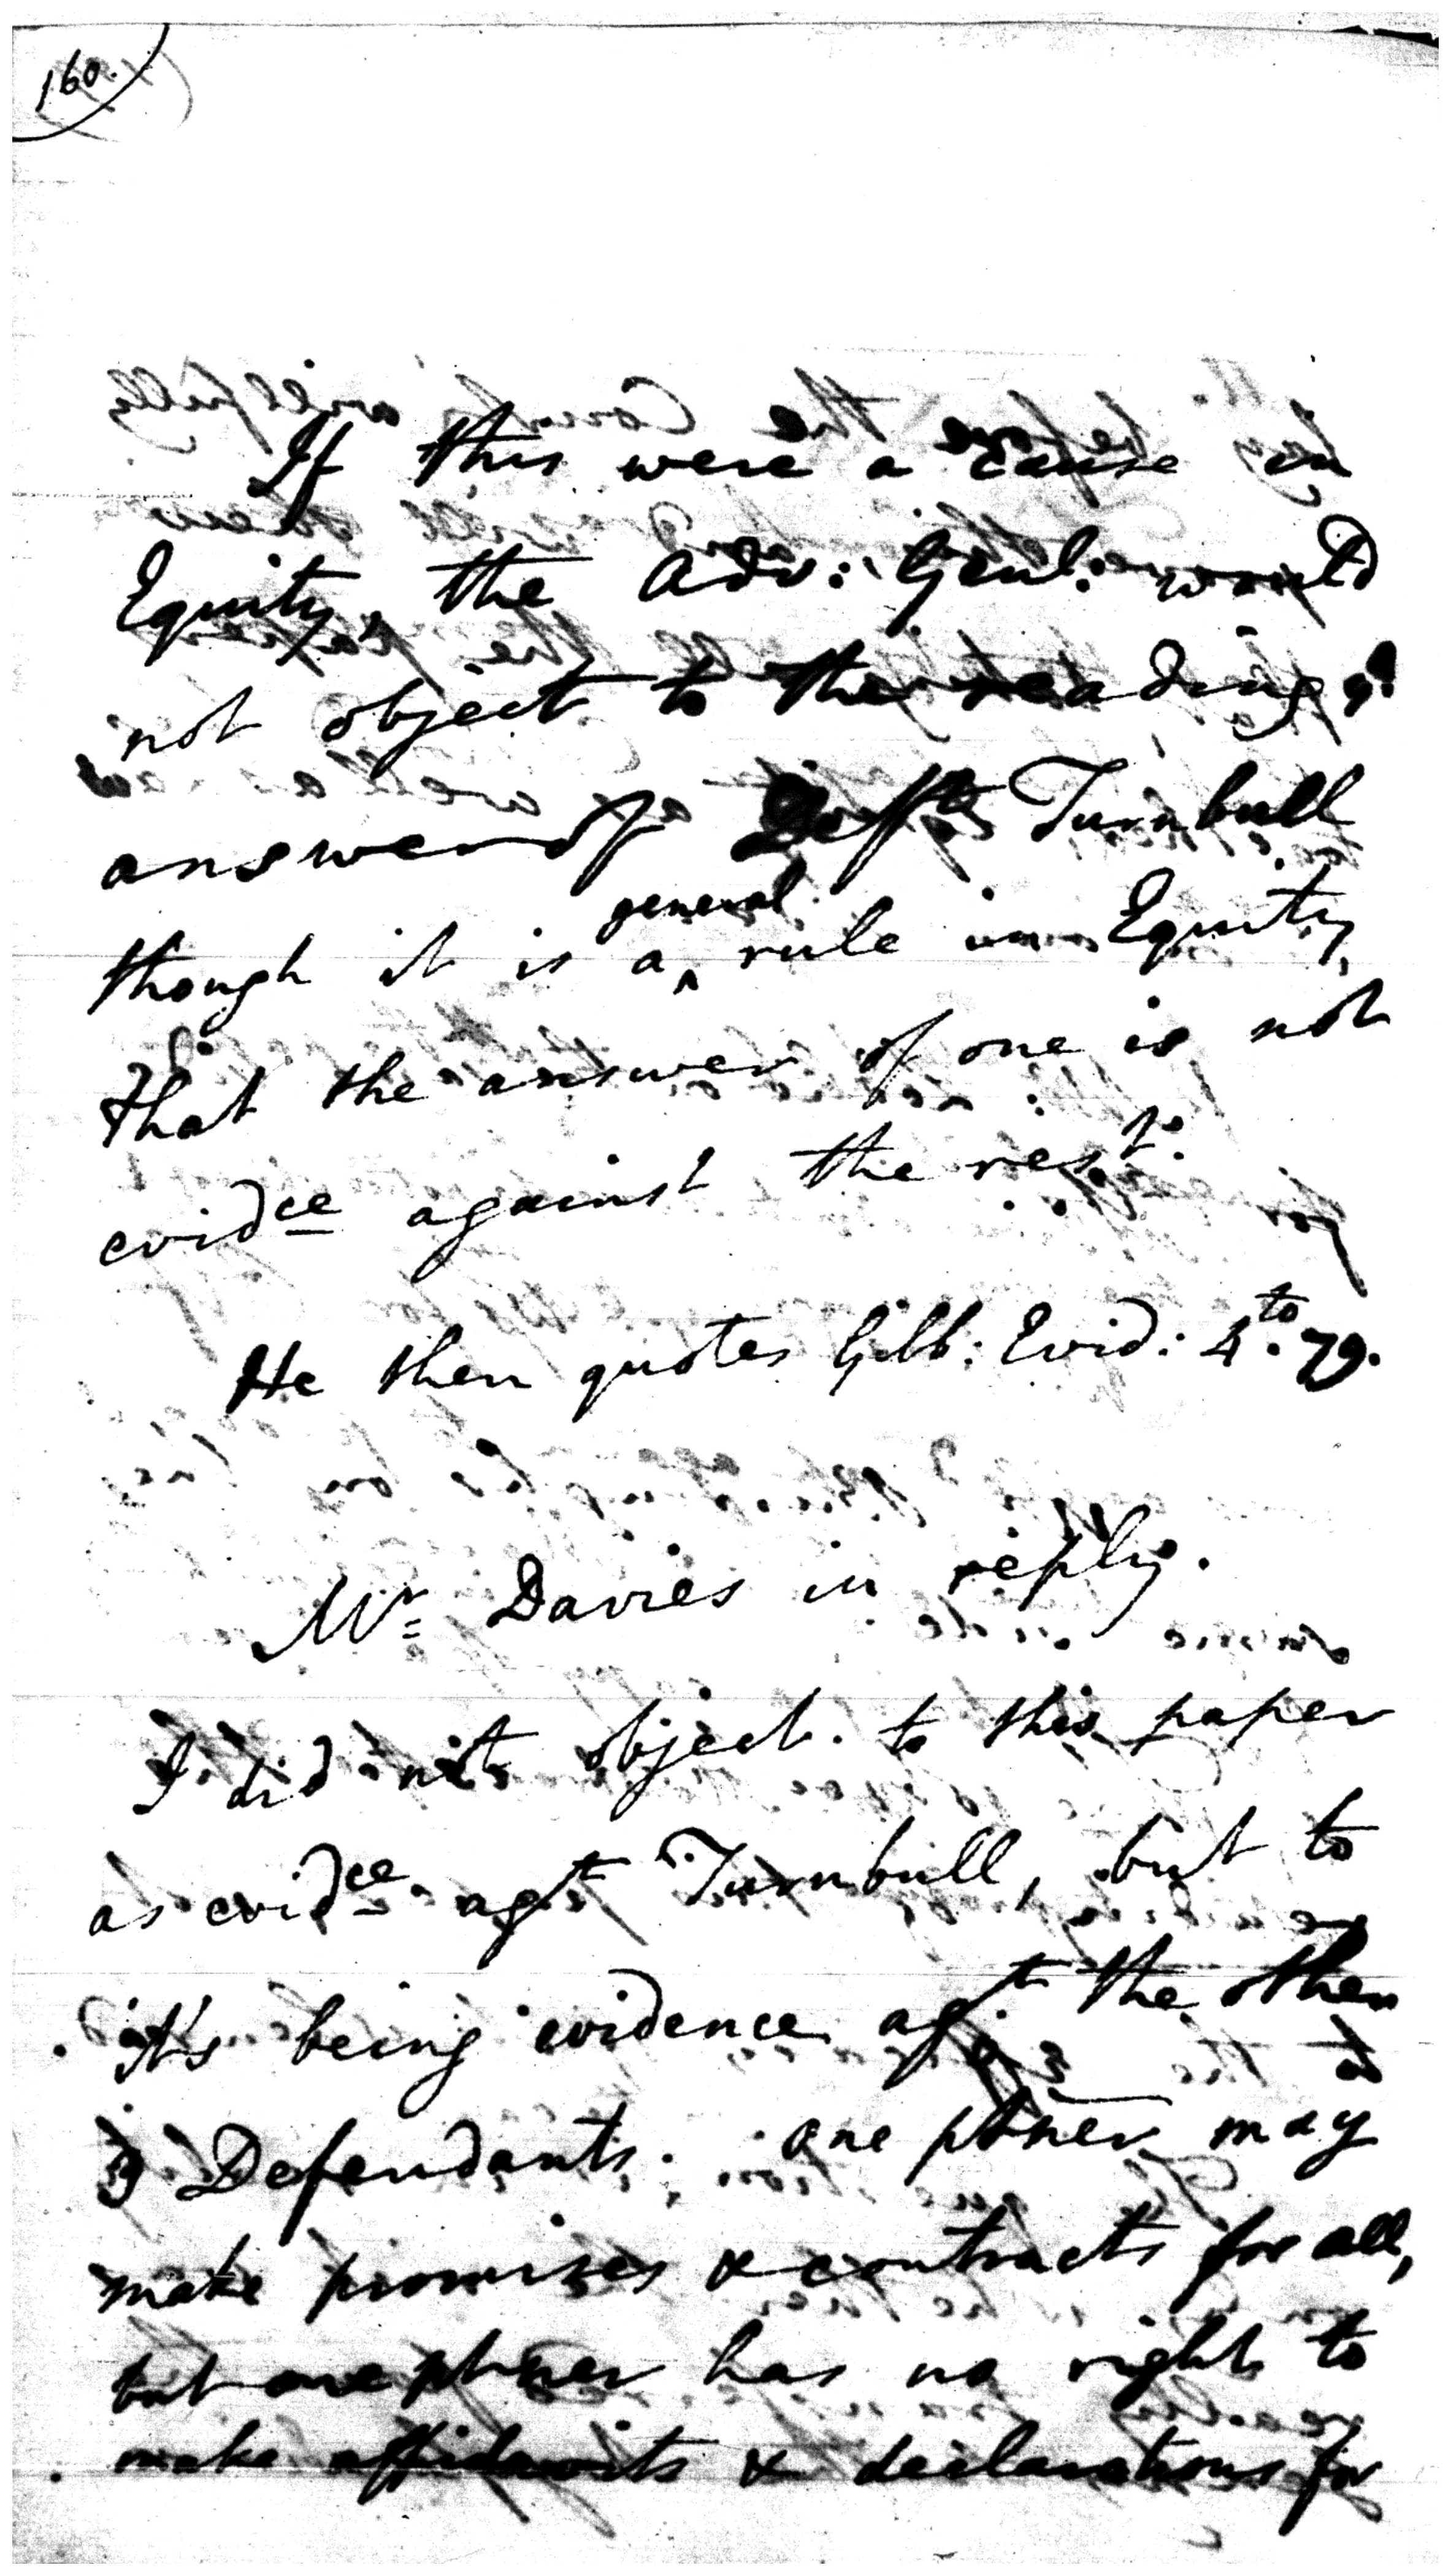 160.
If this were a cause in
Equity, the Adv: Genl: would
not object to the reading ye
answer of Deft Turnbull
though it is a general rule in Equity,
that the answer of one is not
evidce against the rest.
He then quotes Gilb: Evid: 4to. 79.
Mr Davies in reply.
I did not object to this paper
as evidce agt Turnbull, but to
it's being evidence agt the other
3 Defendants. One ptner may
make promises & contracts for all,
but one ptner has no right to
make affidavits & declarations for